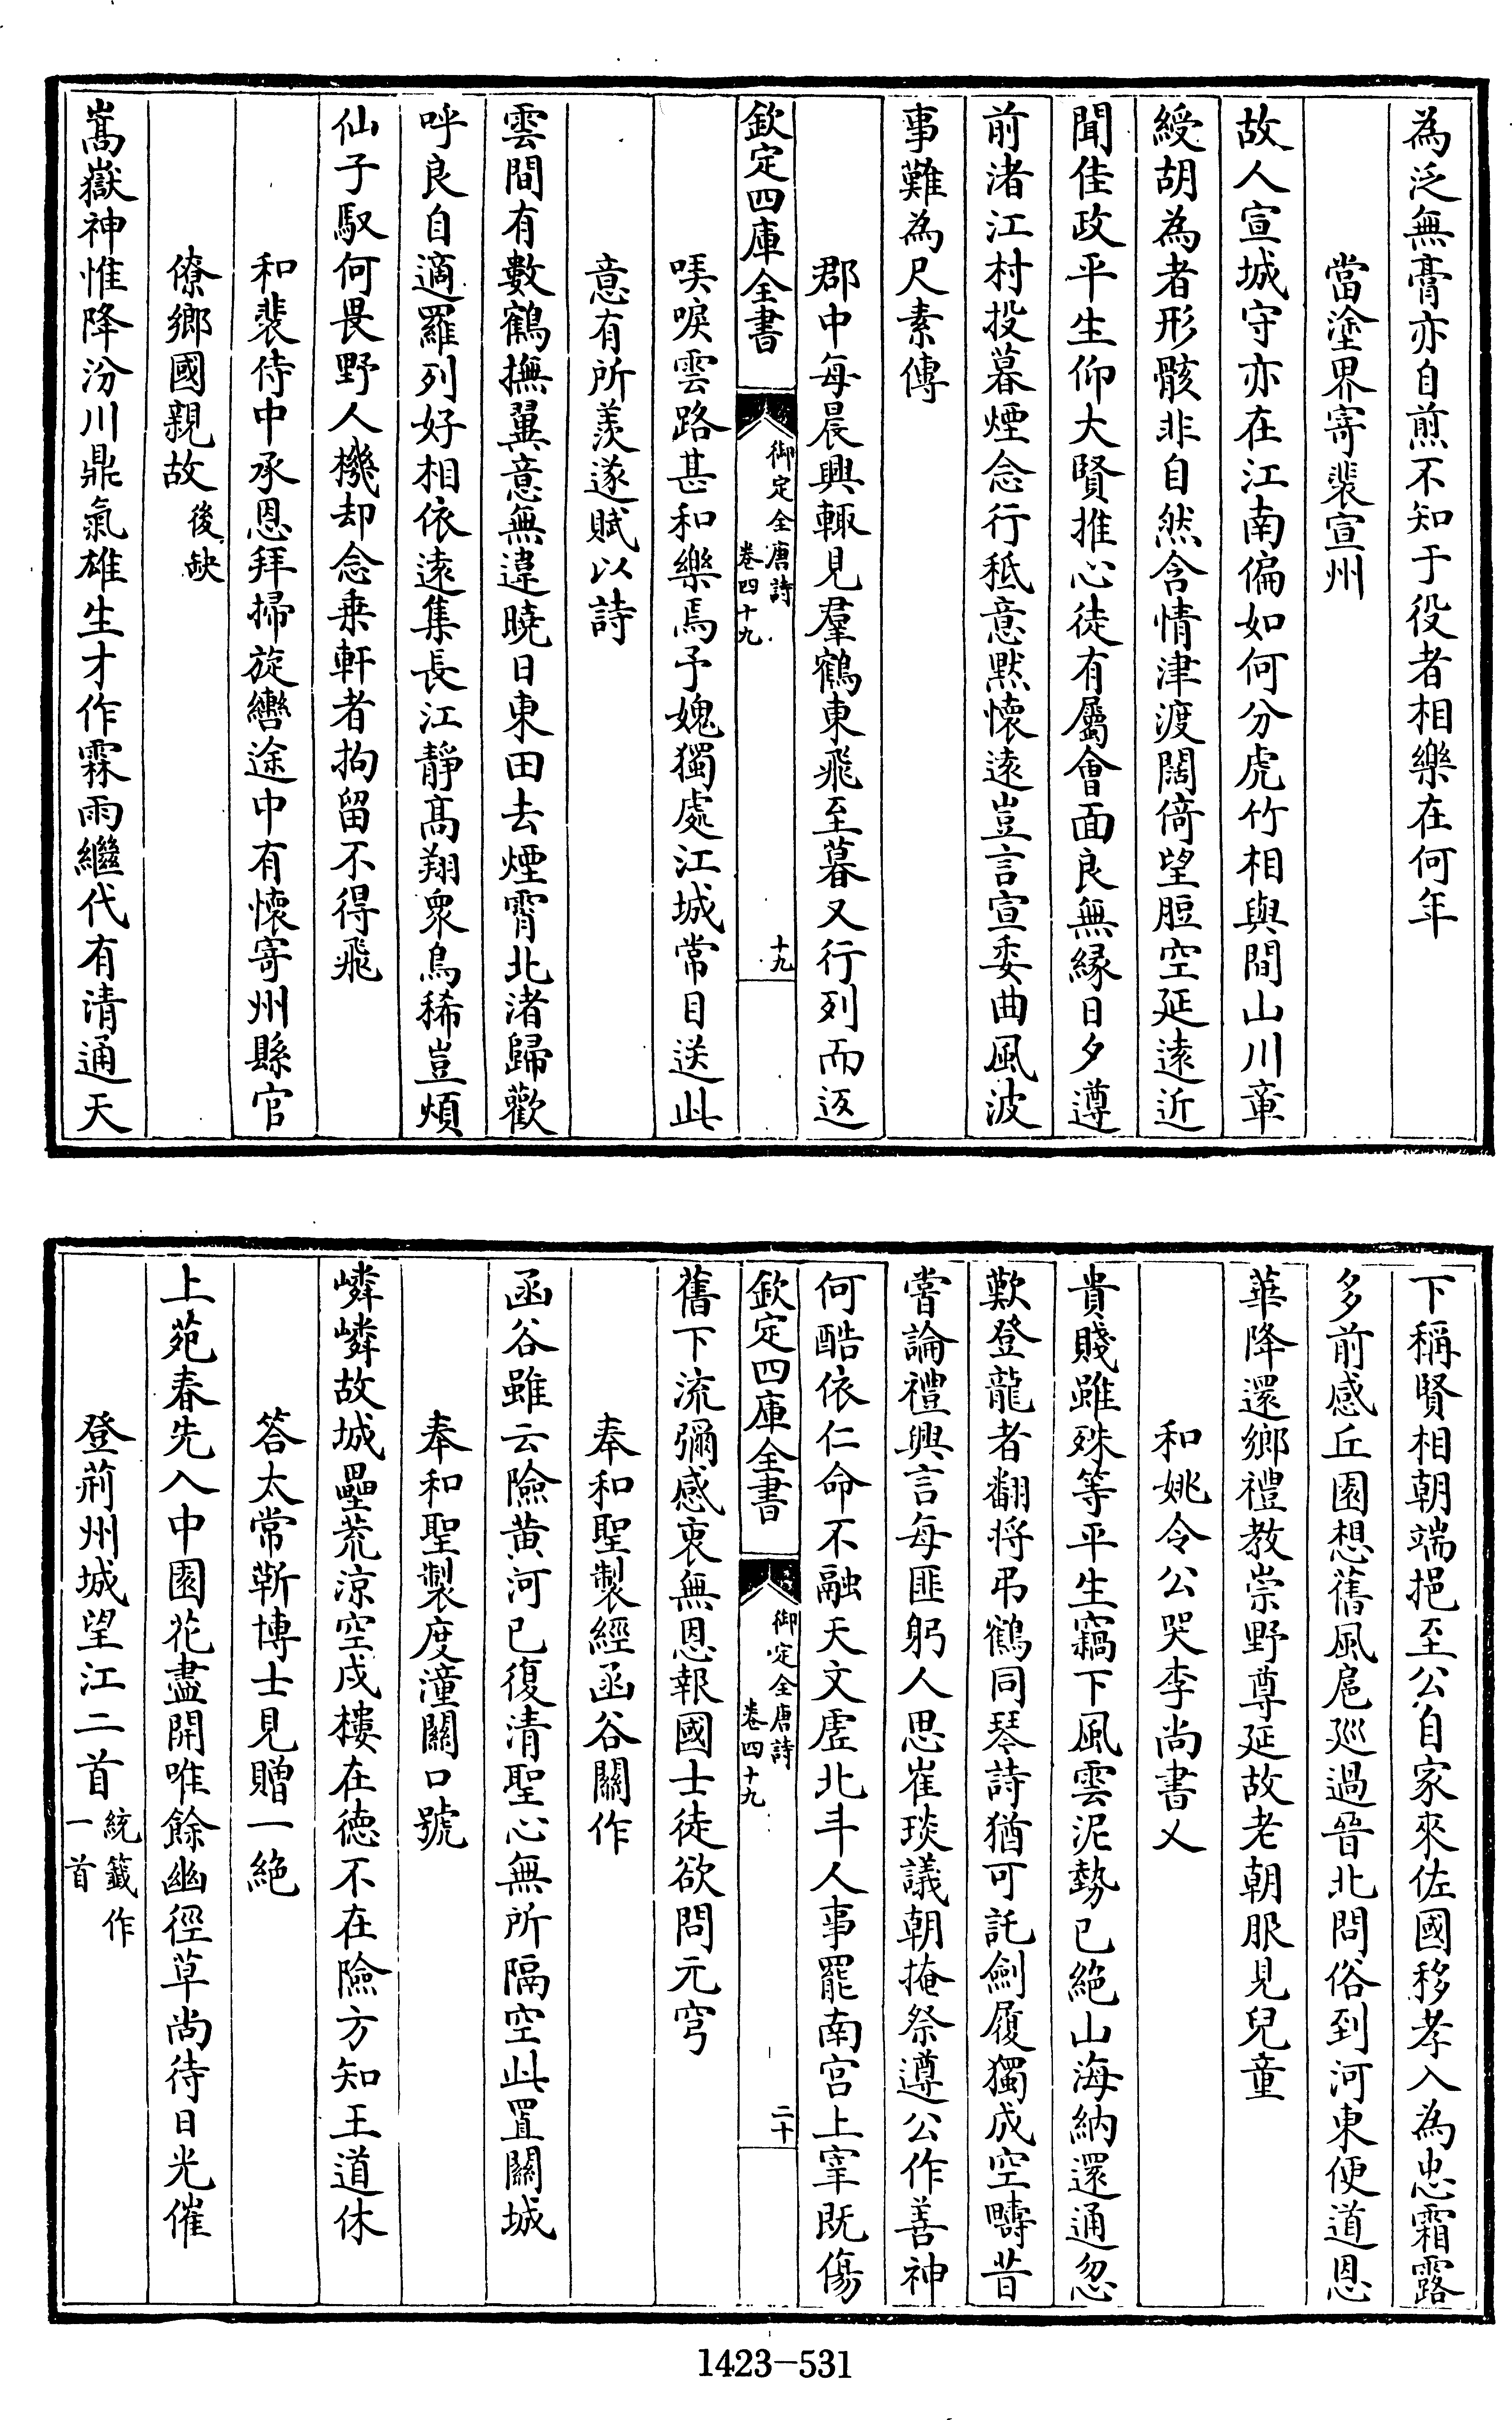 為泛無膏亦自煎不知于役者相樂在何年
當塗界寄裴宣州
故人宣城守亦在江南偏如何分虎竹相與間山川章
綬胡為者形骸非自然含情津渡闊倚望脰空延遠近
聞佳政平生仰大賢推心徒有屬會面良無緣日夕遵
前渚江村投暮煙念行秪意默懷遠豈言宣委曲風波
事難為尺素傳
郡中每晨興輙見羣鶴東飛至暮又行列而返
欽定四庫全書
御定全唐詩
卷四十九
十九
哢唳雲路甚和樂焉予媿獨處江城常目送此
意有所羨遂賦以詩
雲間有數鶴撫翼意無違曉日東田去煙霄北渚歸歡
呼良自適羅列好相依遠集長江靜高翔衆鳥稀豈煩
仙子馭何畏野人機却念乗軒者拘留不得飛
和裴侍中承恩拜掃旋轡途中有懷寄州縣官
僚鄉國親故後缺
嵩嶽神惟降汾川鼎氣雄生才作霖雨繼代有清通天
下稱賢相朝端挹至公自家來佐國移孝入為忠霜露
多前感丘園想舊風扈巡過晉北問俗到河東便道恩
華降還鄉禮教崇野尊延故老朝服見兒童
和姚令公哭李尚書乂
貴賤雖殊等平生竊下風雲泥勢已絶山海納還通忽
歎登龍者翻將弔鶴同琴詩猶可託劍履獨成空疇昔
嘗論禮興言每匪躬人思崔琰議朝掩祭遵公作善神
何酷依仁命不融天文虛北斗人事罷南宫上宰既傷
欽定四庫全書
御定全唐詩
卷四十九
二十
舊下流彌感衷無恩報國士徒欲問元穹
奉和聖製經函谷關作
函谷雖云險黄河已復清聖心無所隔空此置關城
奉和聖製度潼關口號
嶙嶙故城壘荒涼空戍樓在德不在險方知王道休
答太常靳博士見贈一絶
上苑春先入中園花盡開唯餘幽徑草尚待日光催
登荊州城望江二首統籖作一首
1423-531